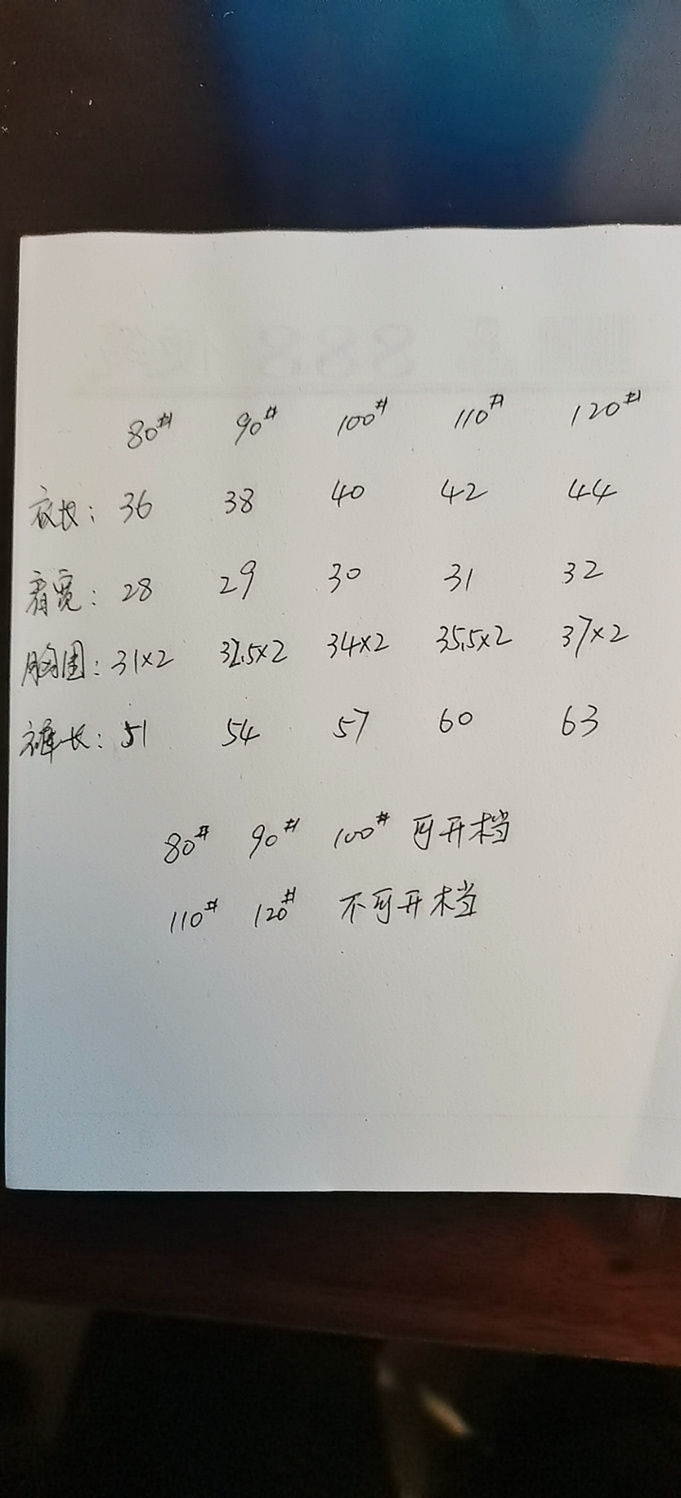 80# 90# 100# 110# 120#
衣长: 36 38 40 42 44
肩宽: 28 29 30 31 32
胸围: 31×2 32.5×2 34×2 35.5×2 37×2
裤长: 51 54 57 60 63
80# 90# 100# 可开档
110# 120# 不可开档